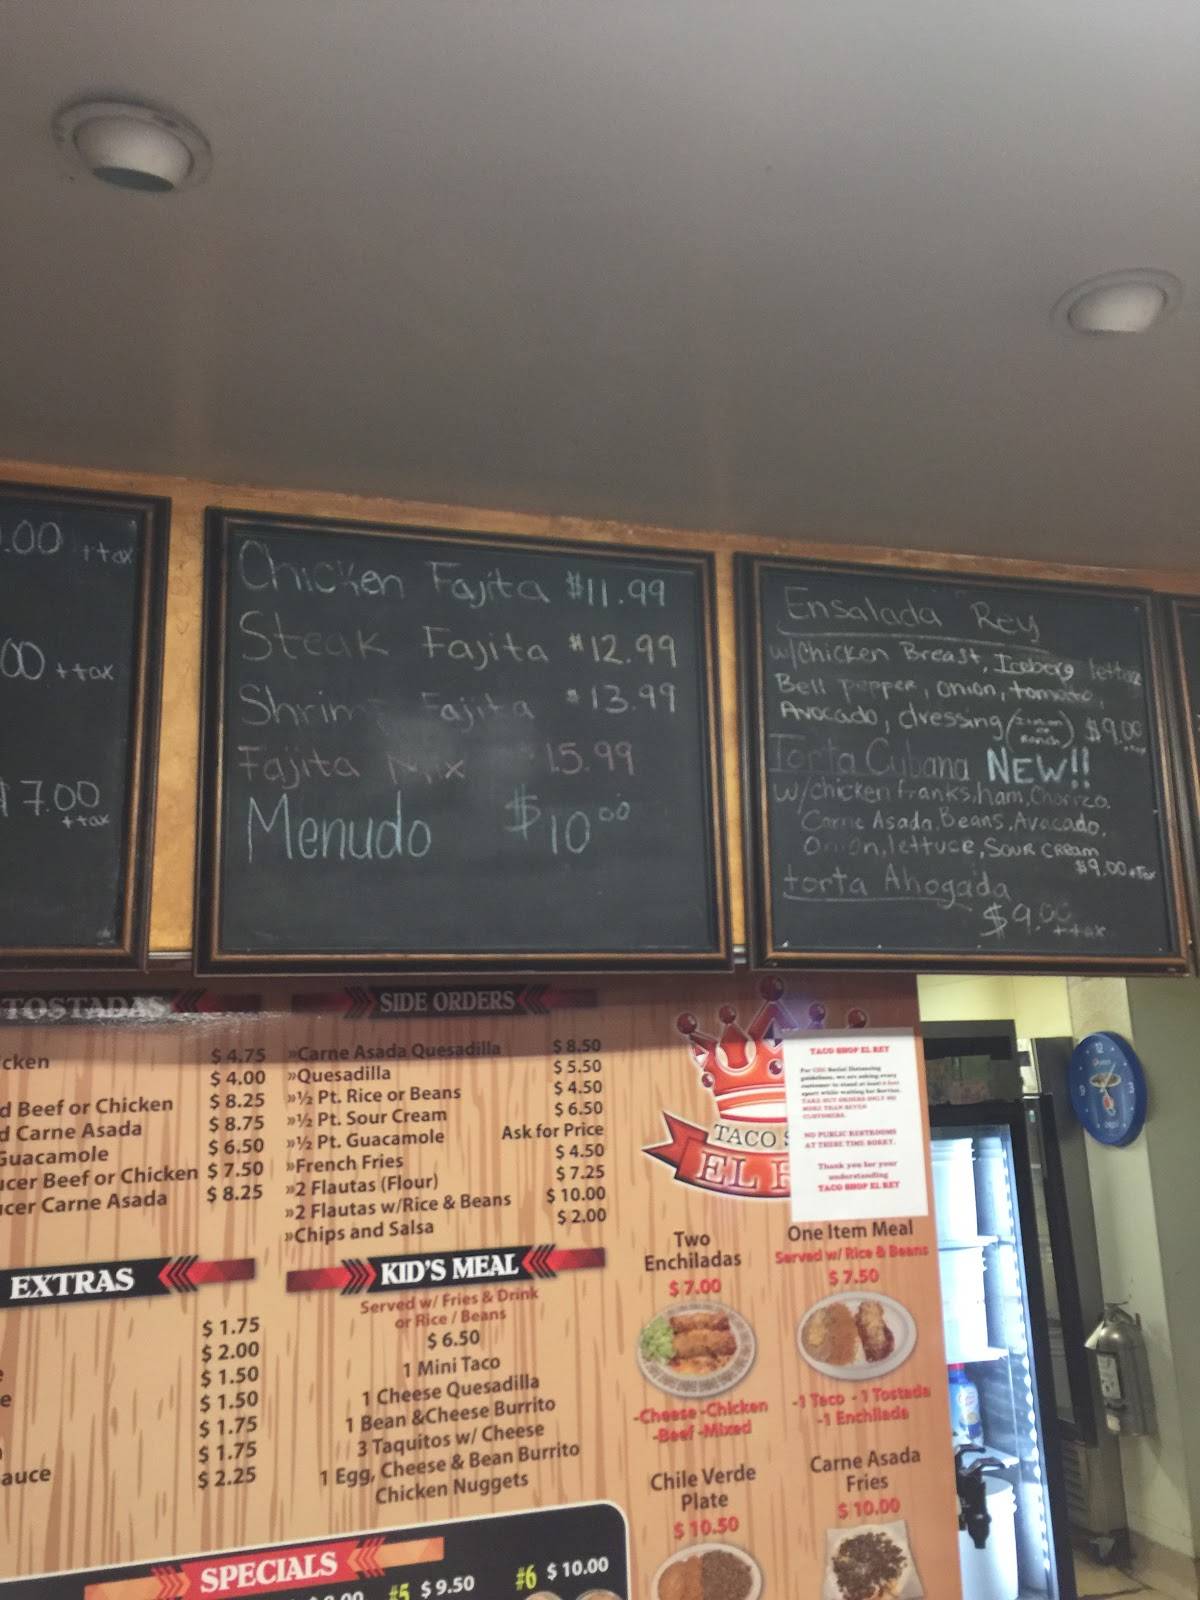 .00 +tax
00 ++tax
$7.00
++tax
Chicken Fajita $11.99
Steak Fajita $12.99
Shrimp Fajita $13.99
Fajita Mix 15.99
Menudo $10.00
Ensalada Rey
w/Chicken Breast, Iceberg lettuce
Bell pepper, onion, tomato,
Avocado, dressing Ranch $9.00
Torta Cubana NEW!!
w/chicken franks, ham, Chorizo.
Carne Asada, Beans, Avacado,
Onion, lettuce, SOUR CREAM
$9.00+Tax
torta Ahogada
$9.00
++tax
TOSTADAS
cken $ 4.75
$ 4.00
d Beef or Chicken $ 8.25
d Carne Asada $ 8.75
Guacamole $ 6.50
cer Beef or Chicken $ 7.50
cer Carne Asada $ 8.25
SIDE ORDERS
»Carne Asada Quesadilla $ 8.50
»Quesadilla $ 5.50
»½ Pt. Rice or Beans $ 4.50
»½ Pt. Sour Cream $ 6.50
»½ Pt. Guacamole Ask for Price
»French Fries $ 4.50
»2 Flautas (Flour) $ 7.25
»2 Flautas w/Rice & Beans $ 10.00
»Chips and Salsa $ 2.00
EXTRAS
$ 1.75
$ 2.00
e $ 1.50
$ 1.50
$ 1.75
$ 1.75
auce $ 2.25
KID'S MEAL
Served w/ Fries & Drink
or Rice / Beans
$ 6.50
1 Mini Taco
1 Cheese Quesadilla
1 Bean &Cheese Burrito
3 Taquitos w/ Cheese
1 Egg, Cheese & Bean Burrito
Chicken Nuggets
SPECIALS
#5 $ 9.50
#6 $ 10.00
TACO S
EL R
TACO SHOP EL REY
For CDC Social Distancing
guidelines, we are asking every
customer to stand at least 6 feet
apart while waiting for Service.
TAKE OUT ORDERS ONLY NO
MORE THAN SEVEN
CUSTOMERS.
NO PUBLIC RESTROOMS
AT THESE TIME SORRY.
Thank you for your
understanding
TACO SHOP EL REY
Two
Enchiladas
$ 7.00
-Cheese -Chicken
-Beef -Mixed
One Item Meal
Served w/ Rice & Beans
$ 7.50
-1 Taco - 1 Tostada
-1 Enchilada
Chile Verde
Plate
$ 10.50
Carne Asada
Fries
$ 10.00